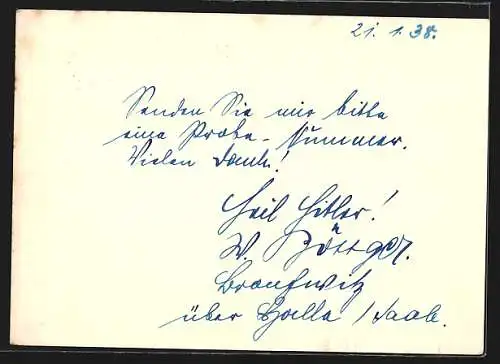 21. 1. 38.
Senden Sie mir bitte
eine Probe-Nummer.
Vielen Dank!
Heil Hitler!
W. Böttger.
über Halle / Saale.